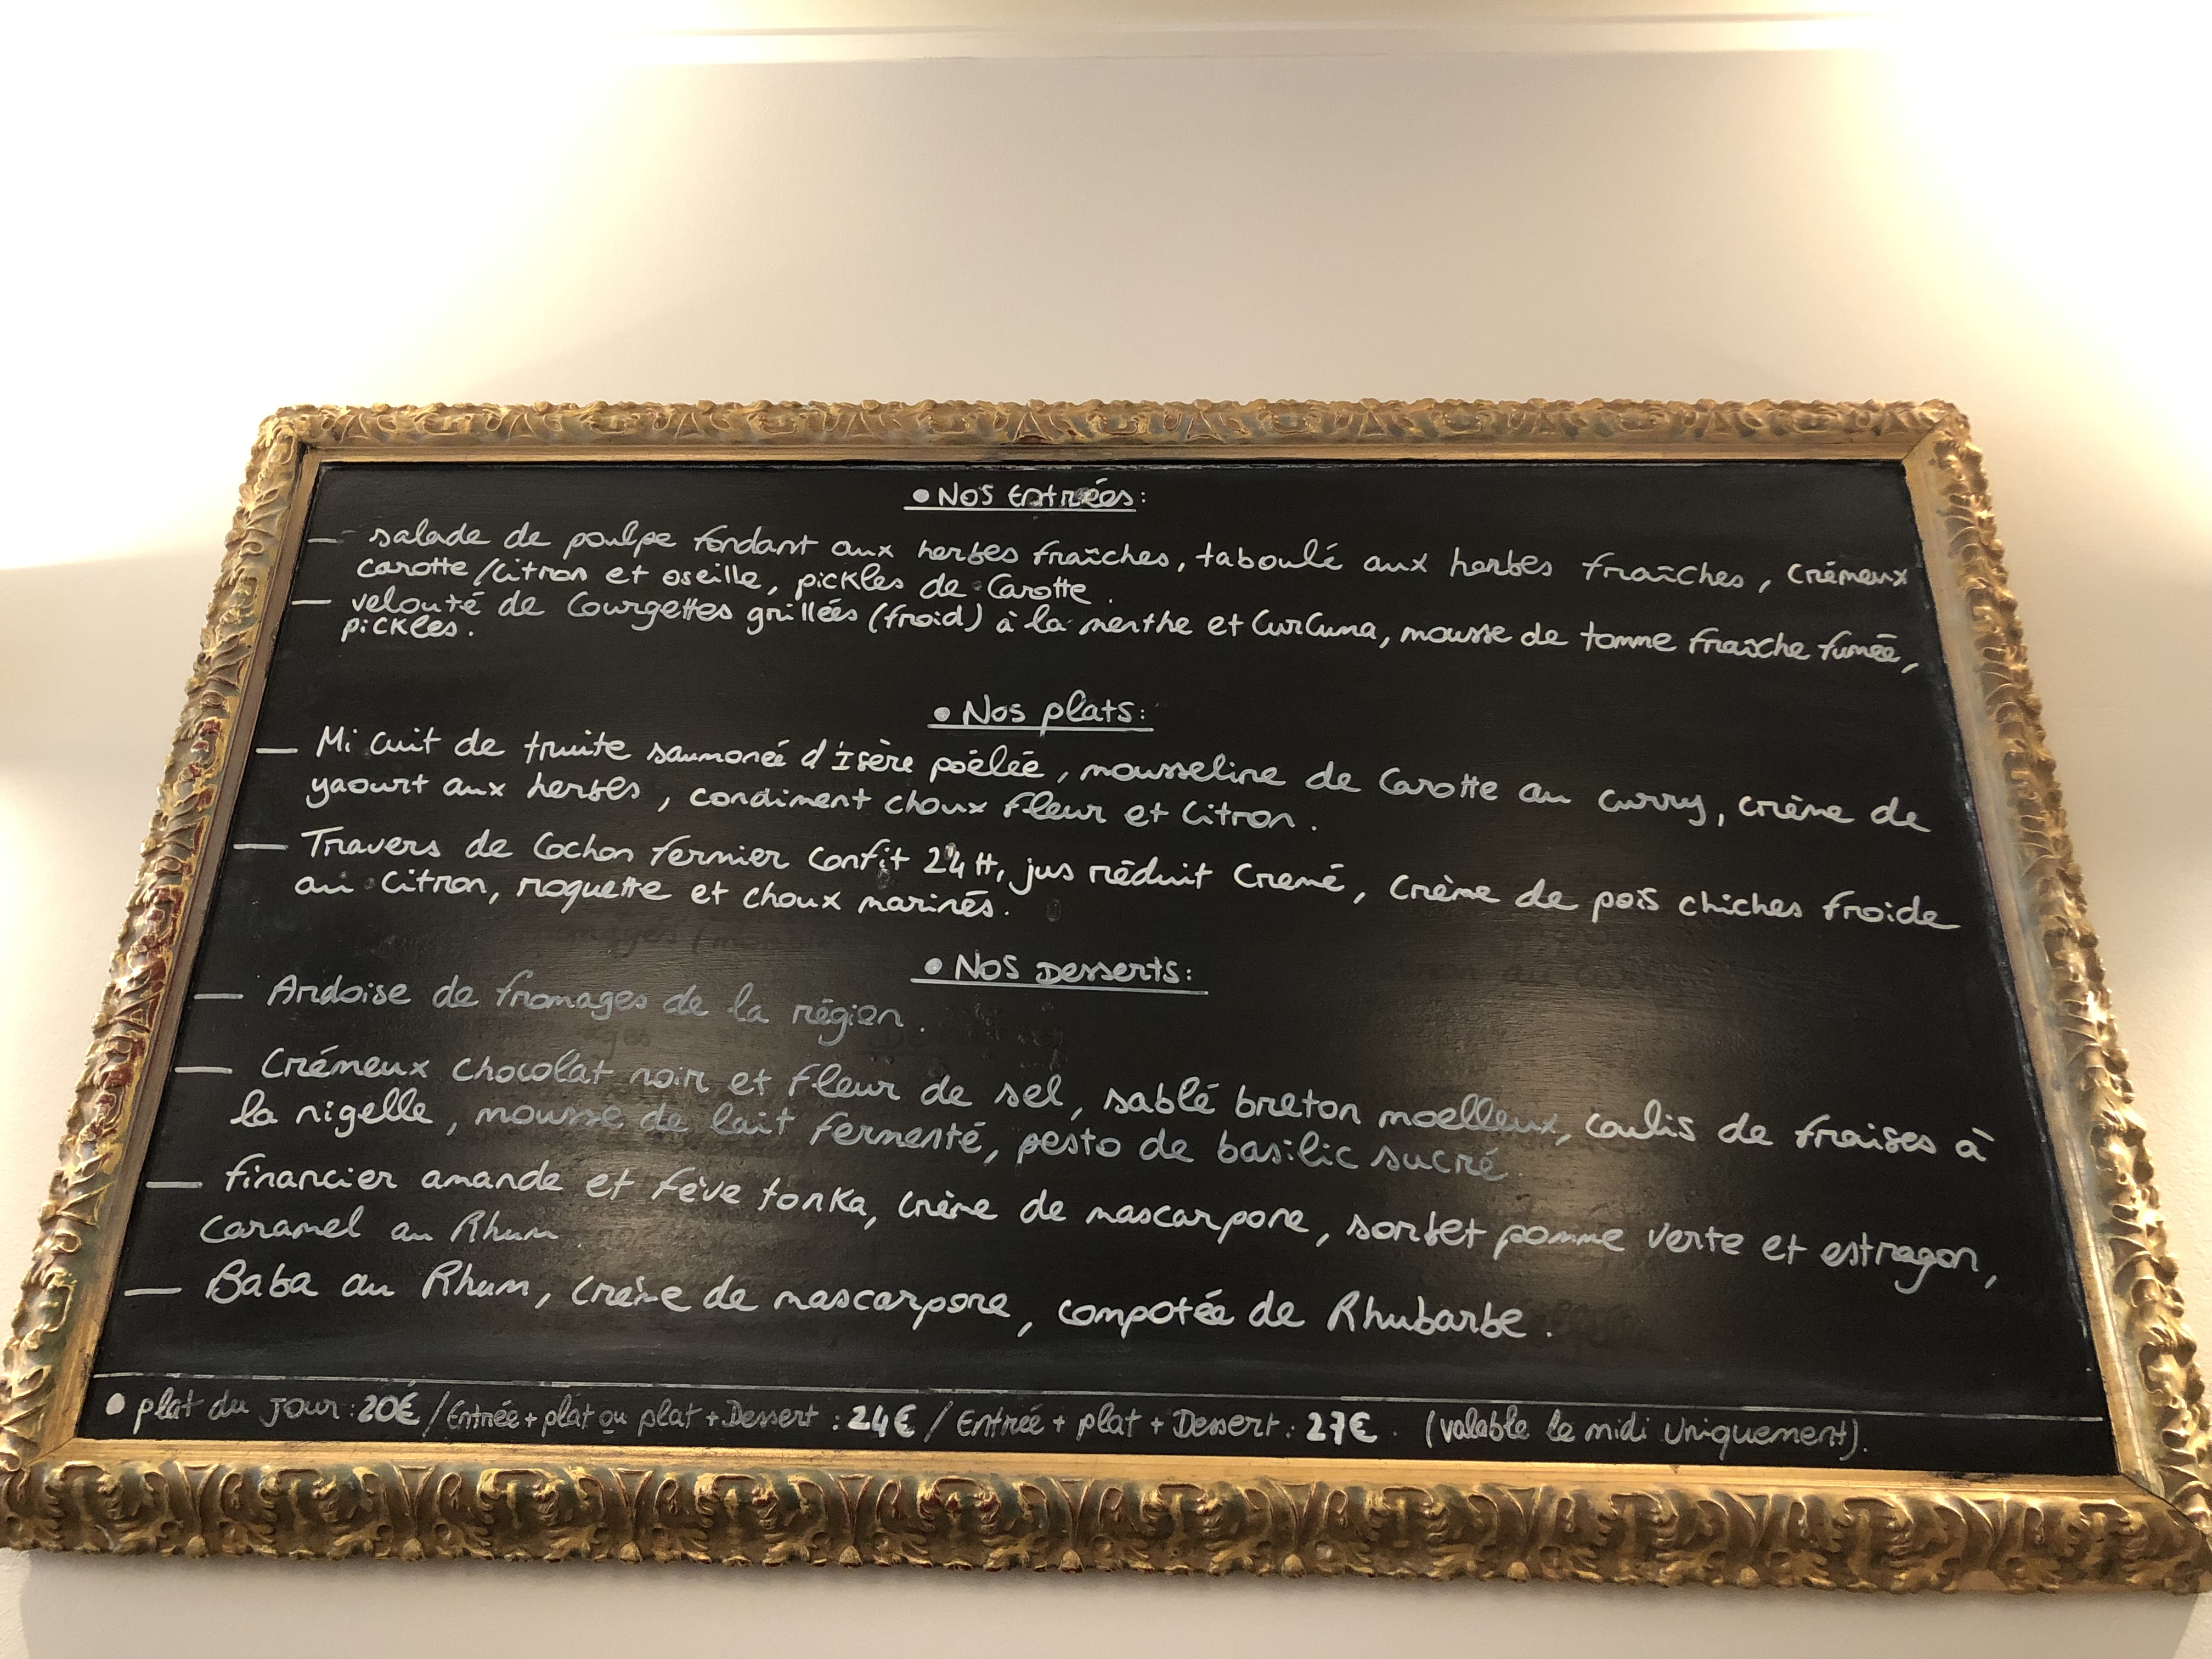 • Nos Entrées:
— salade de poulpe fondant aux herbes fraîches, taboulé aux herbes fraîches, crémeux
carotte/citron et oseille, pickles de carotte.
— velouté de courgettes grillées (froid) à la menthe et curcuma, mousse de tomme fraîche fumée,
pickles.
• Nos plats:
— Mi cuit de truite saumonée d'Isère poêlée, mousseline de carotte au curry, crème de
yaourt aux herbes, condiment choux fleur et citron.
— Travers de cochon fermier confit 24H, jus réduit cremé, crème de pois chiches froide
au citron, roquette et choux marinés.
• Nos Desserts:
— Ardoise de fromages de la région.
— Crémeux chocolat noir et fleur de sel, sablé breton moelleux, coulis de fraises à
la nigelle, mousse de lait fermenté, pesto de basilic sucré
— financier amande et fève tonka, crème de mascarpone, sorbet pomme verte et estragon,
caramel au Rhum.
— Baba au Rhum, crème de mascarpone, compotée de Rhubarbe.
• plat du jour: 20€ / Entrée + plat ou plat + Dessert: 24€ / Entrée + plat + Dessert: 27€. (valable le midi uniquement).